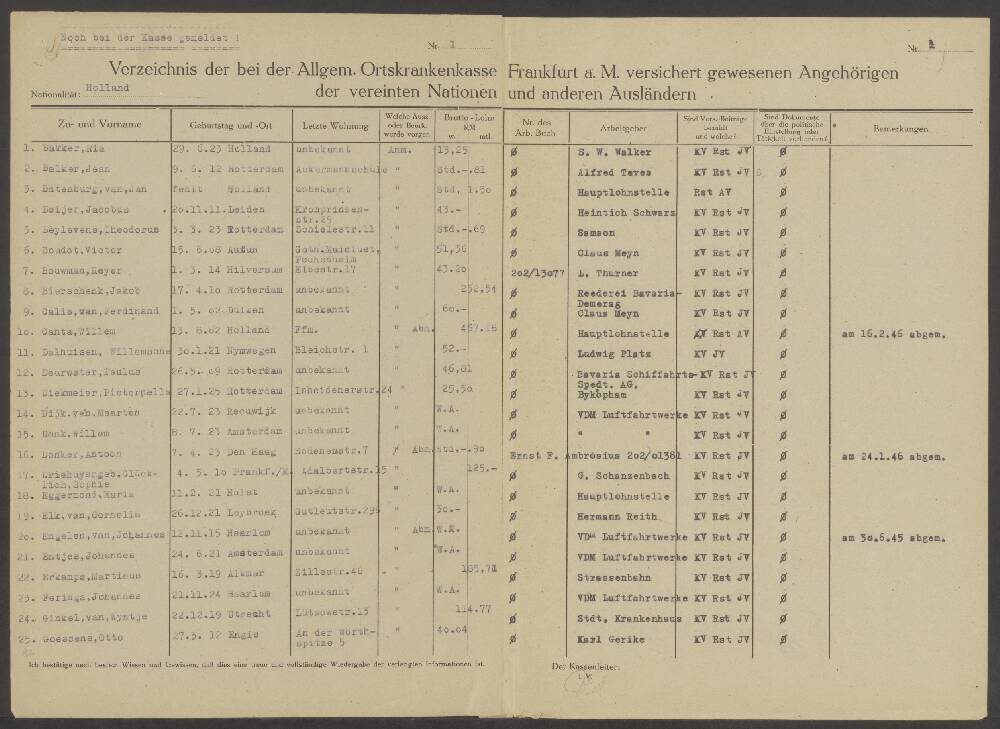 Noch bei der Kasse gemeldet !
Nr. 1
Nr. 1
Verzeichnis der bei der Allgem. Ortskrankenkasse Frankfurt a. M. versichert gewesenen Angehörigen
Nationalität: Holland
der vereinten Nationen und anderen Ausländern
Zu- und Vorname Geburtstag und -Ort Letzte Wohnung Welche Ausw. oder Beurk. wurde vorgen. Brutto-Lohn RM w. mtl. Nr. des Arb. Buch. Arbeitgeber Sind Vers.-Beiträge bezahlt und welche? Sind Dokumente über die politische Einstellung oder Tätigkeit vorhanden? Bemerkungen
1. Bakker,Ria 29. 6.23 Holland unbekannt Anm. 13,25 Ø S. W. Walker KV Rst JV Ø
2. Balker,Jean 9. 6. 12 Rotterdam Ackermannschule " Std.-.81 Ø Alfred Teves KV Rst JV Ø
3. Batenburg,van,Jan fehlt Holland unbekannt " Std. 1.30 Ø Hauptlohnstelle Rst AV Ø
4. Beijer,Jacobus 20.11.11.Leiden Kronprinzen-str.29 " 43.- Ø Heintich Schwarz KV Rst JV Ø
5. Beylevens,Theodorus 3. 3. 23 Rotterdam Schielestr.11 " Std.-.69 Ø Samson KV Rst JV Ø
6. Bondot,Victor 15. 6.08 Goth.Mainlust, Fechenheim " 51,36 Ø Claus Meyn KV Rst JV Ø
7. Bouwman,Reyer 1. 3. 14 Hilversum Elbestr.17 " 43.20 202/13077 L. Thurner KV Rst JV Ø
8. Bierschenk,Jakob 17. 4.10 Rotterdam unbekannt " 252,54 Ø Reederei Bavaria-Demerag KV Rst JV Ø
9. Calis,van,Ferdinand 1. 5. 02 Dilsen unbekannt " 60.- Ø Claus Meyn KV Rst JV Ø
10. Canta,Willem 13. 8.02 Holland Ffm. " Abm. Ø Hauptlohnstelle Rst AV Ø am 16.2.46 abgem.
11. Dalhuisen, 30.1.21 Nymwegen Bleichstr. 1 " 52.- Ø Ludwig Platz KV JV Ø
12. Deurwater,Paulus 26.5.09 Rotterdam unbekannt " 46,81 Ø Bavaria Schiffahrts- Spedt. AG. KV Rst JV Ø
13. Diekmeier, 27.1.25 Rotterdam Inheidenerstr.24 " 25.50 Ø Bykopham KV Rst JV Ø
14. Dijk,van,Maarten 22.7. 23 Reeuwijk unbekannt " W.A. Ø VDM Luftfahrtwerke KV Rst JV Ø
15. Willem 8. 7. 23 Amsterdam unbekannt " W.A. Ø " " KV Rst JV Ø
16. Donker,Antoon 7. 4. 23 Den Haag Hodenesstr.7 Abm. Std.-.80 Ernst F. Ambrosius 202/01381 KV Rst JV Ø am 24.1.46 abgem.
17. Driehuys,geb.Glück-lich,Sophie 4. 5. 10 Frankf./M. Adalbertstr.15 " 125.- Ø G. Schanzenbach KV Rst JV Ø
18. Eggermond,Maria 11.2. 21 Hulst unbekannt " W.A. Ø Hauptlohnstelle KV Rst JV Ø
19. Elk,van,Cornelis 26.12.21 Loybroek Gutleutstr.295 " 30.- Ø Hermann Reith KV Rst JV Ø
20. Engelen,van,Johannes 12.11.15 Haarlem unbekannt " Abm. W.A. Ø VDM Luftfahrtwerke KV Rst JV Ø am 30.6.45 abgem.
21. Entjes,Johannes 24. 6.21 Amsterdam unbekannt " W.A. Ø VDM Luftfahrtwerke KV Rst JV Ø
22. Erkamps,Martinus 16. 3.19 Alkmar Zillestr.46 " 165,71 Ø Strassenbahn KV Rst JV Ø
23. Feringa,Johannes 21.11.24 Haarlem unbekannt " W.A. Ø VDM Luftfahrtwerke KV Rst JV Ø
24. Ginkel,van,Wyntje 22.12.19 Utrecht Lützowstr.15 " 114.77 Ø Stdt. Krankenhaus KV Rst JV Ø
25. Goessens,Otto 27.3. 12 Engis An der Wörth-spitze 5 " 40.04 Ø Karl Gerike KV Rst JV Ø
Ich bestätige nach bestem Wissen und Gewissen, daß dies eine treue und vollständige Wiedergabe der verlangten Informationen ist.
Der Kassenleiter:
i.V.